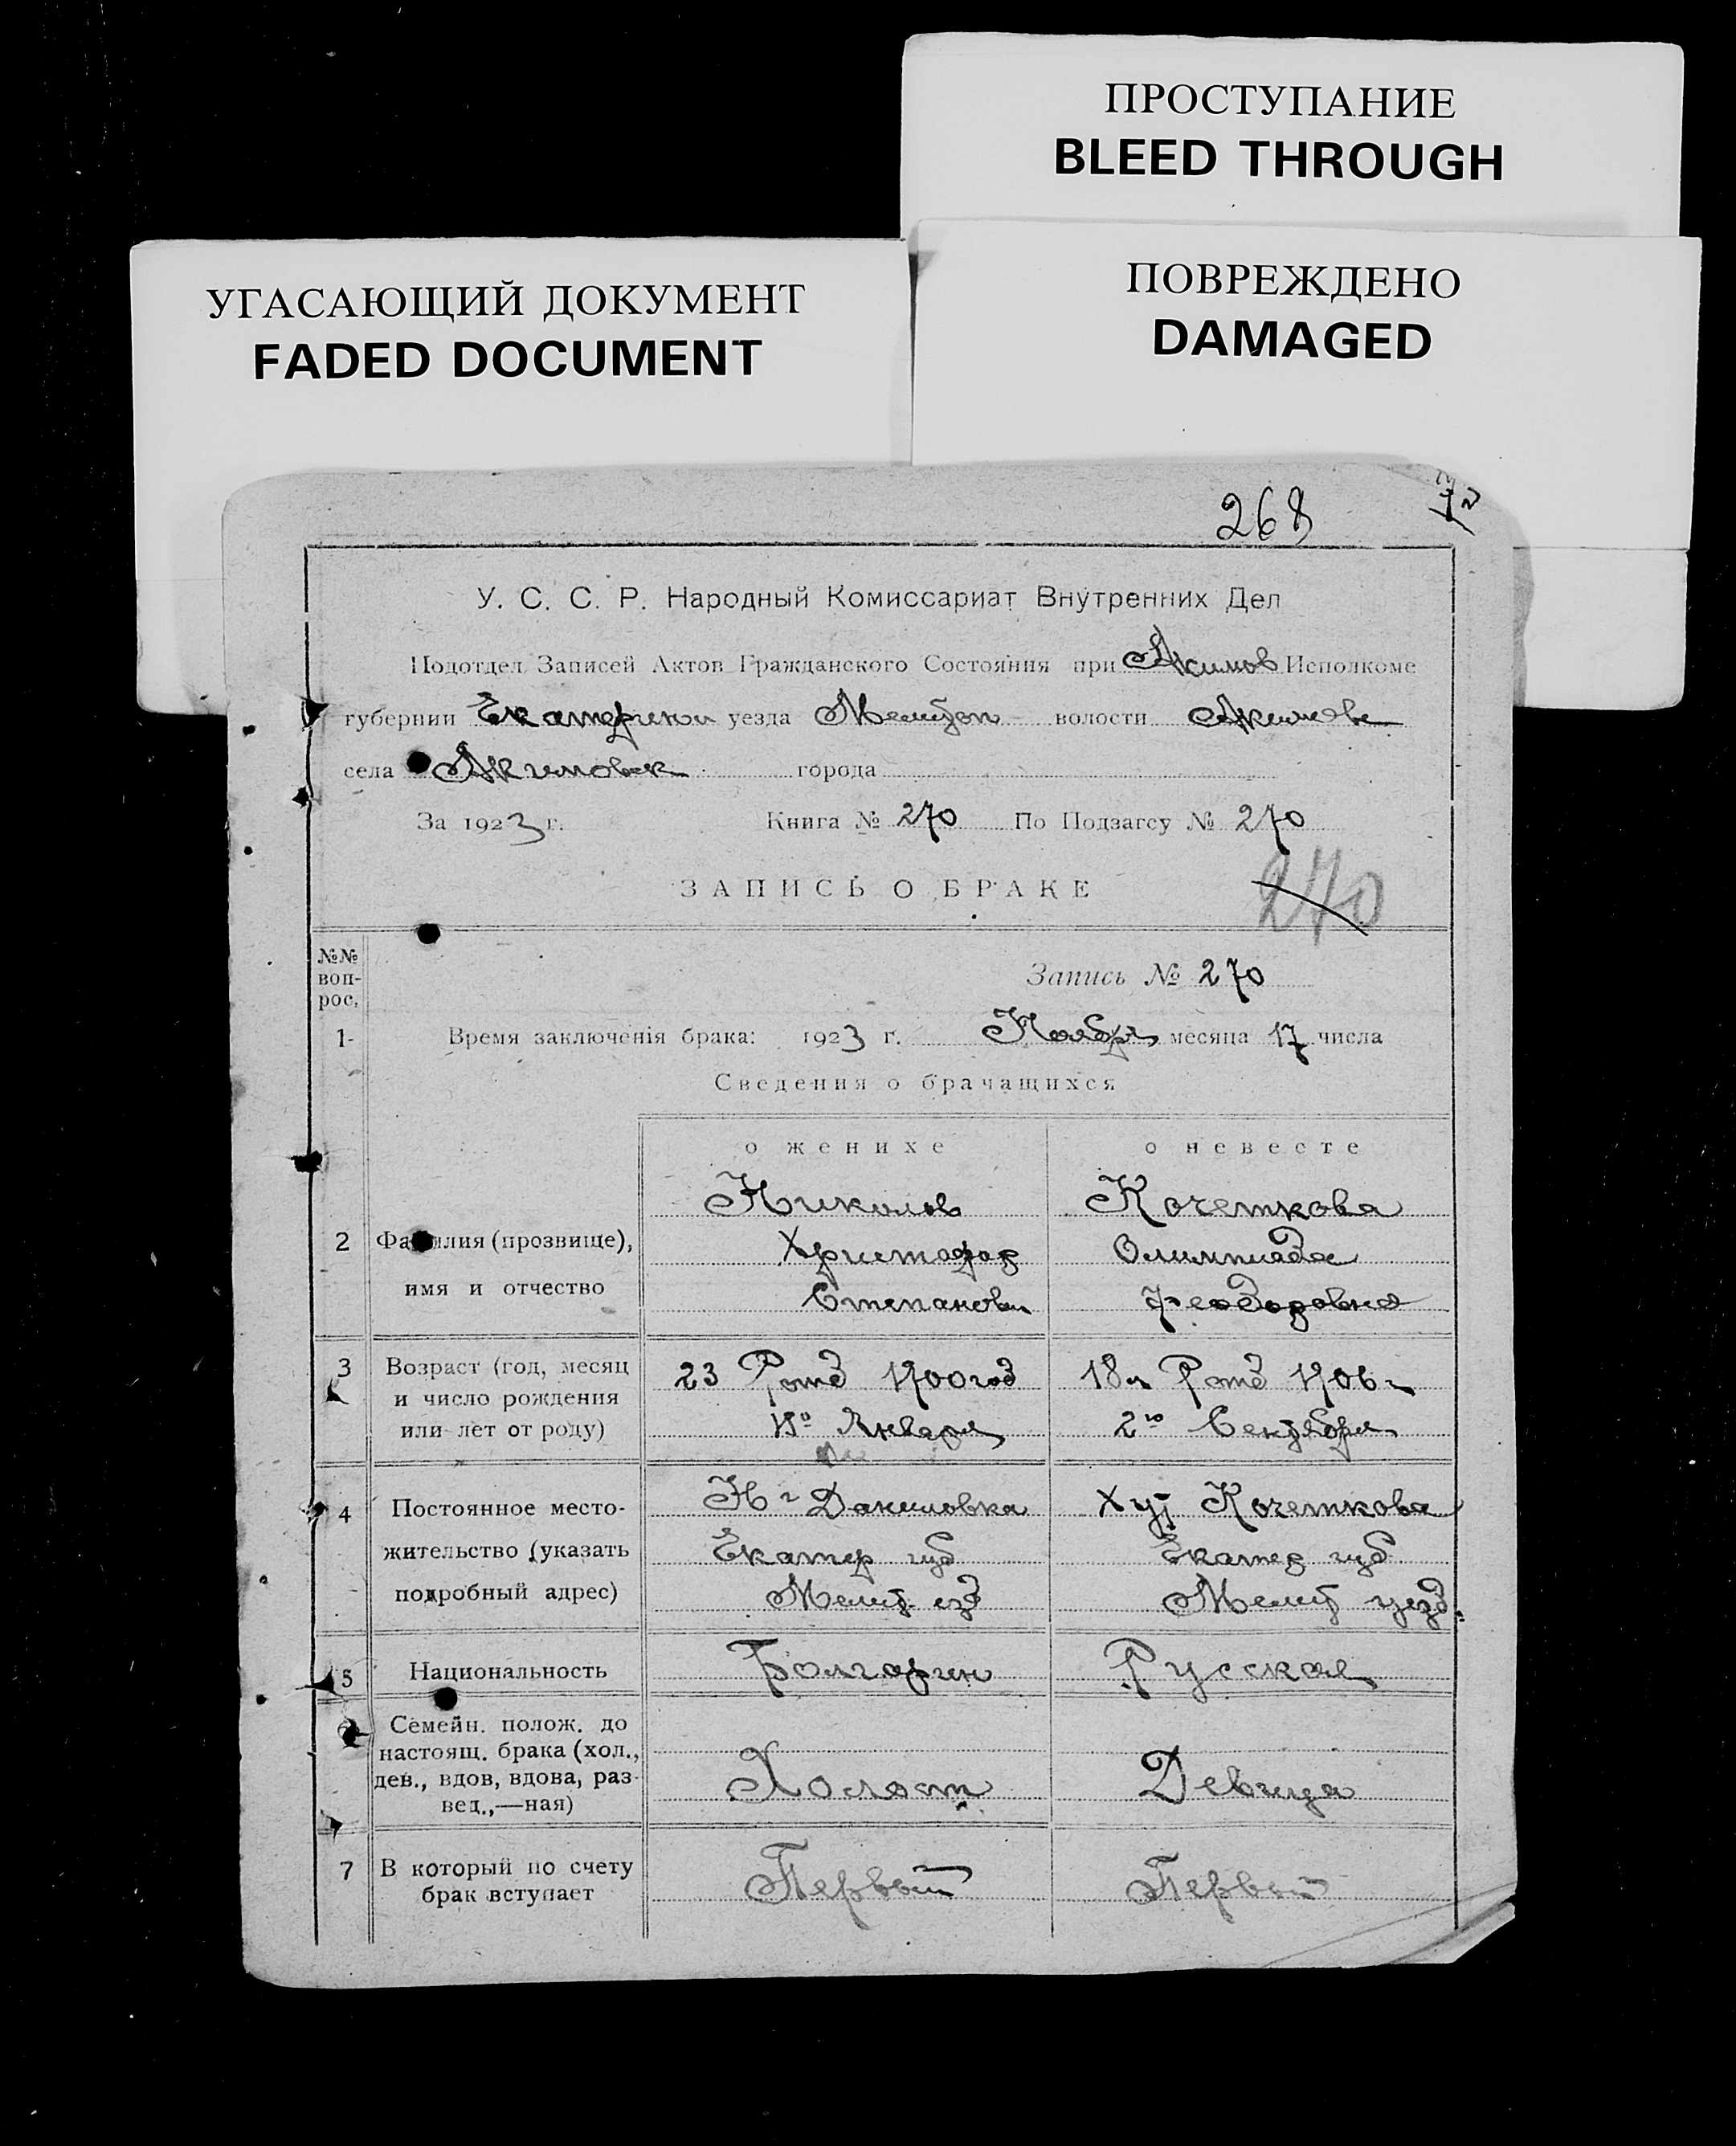 ПРОСТУПАНИЕ
BLEED THROUGH
ПОВРЕЖДЕНО
DAMAGED
УГАСАЮЩИЙ ДОКУМЕНТ
FADED DOCUMENT
268
У. С. С. Р. Народный Комиссариат Внутренних Дел
Подотдел Записей Актов Гражданского Состояния при Акимов Исполкоме
губернии Екатерини уезда Мелитоп волости Акимове
села Акимовск города
За 1923 г. Книга № 270 По Подзагсу № 270
ЗАПИСЬ О БРАКЕ 270
№№ воп-рос.
Запись № 270
1- Время заключенія брака: 1923 г. Ноября месяца 17 числа
Сведения о брачащихся
о женихе о невесте
Николов Кочеткова
2 Фамилия (прозвище), Христофор Олимпиада
имя и отчество Степанови Феодоровна
3 Возраст (год, месяц 23 Рожд 1900 год 18 л Рожд 1906 г
и число рождения
или лет от роду) Января 2го Сентября
4 Постоянное место- Н Даниловка Хут Кочеткова
жительство (указать Екатер губ Екатер губ
подробный адрес) Мелит. езд Мелит уезд.
5 Национальность Болгарин Русская
6 Семейн. полож. до
настоящ. брака (хол.,
дев., вдов, вдова, раз- Холост Девица
вед.,—ная)
7 В который по счету Первый Первый
брак вступает